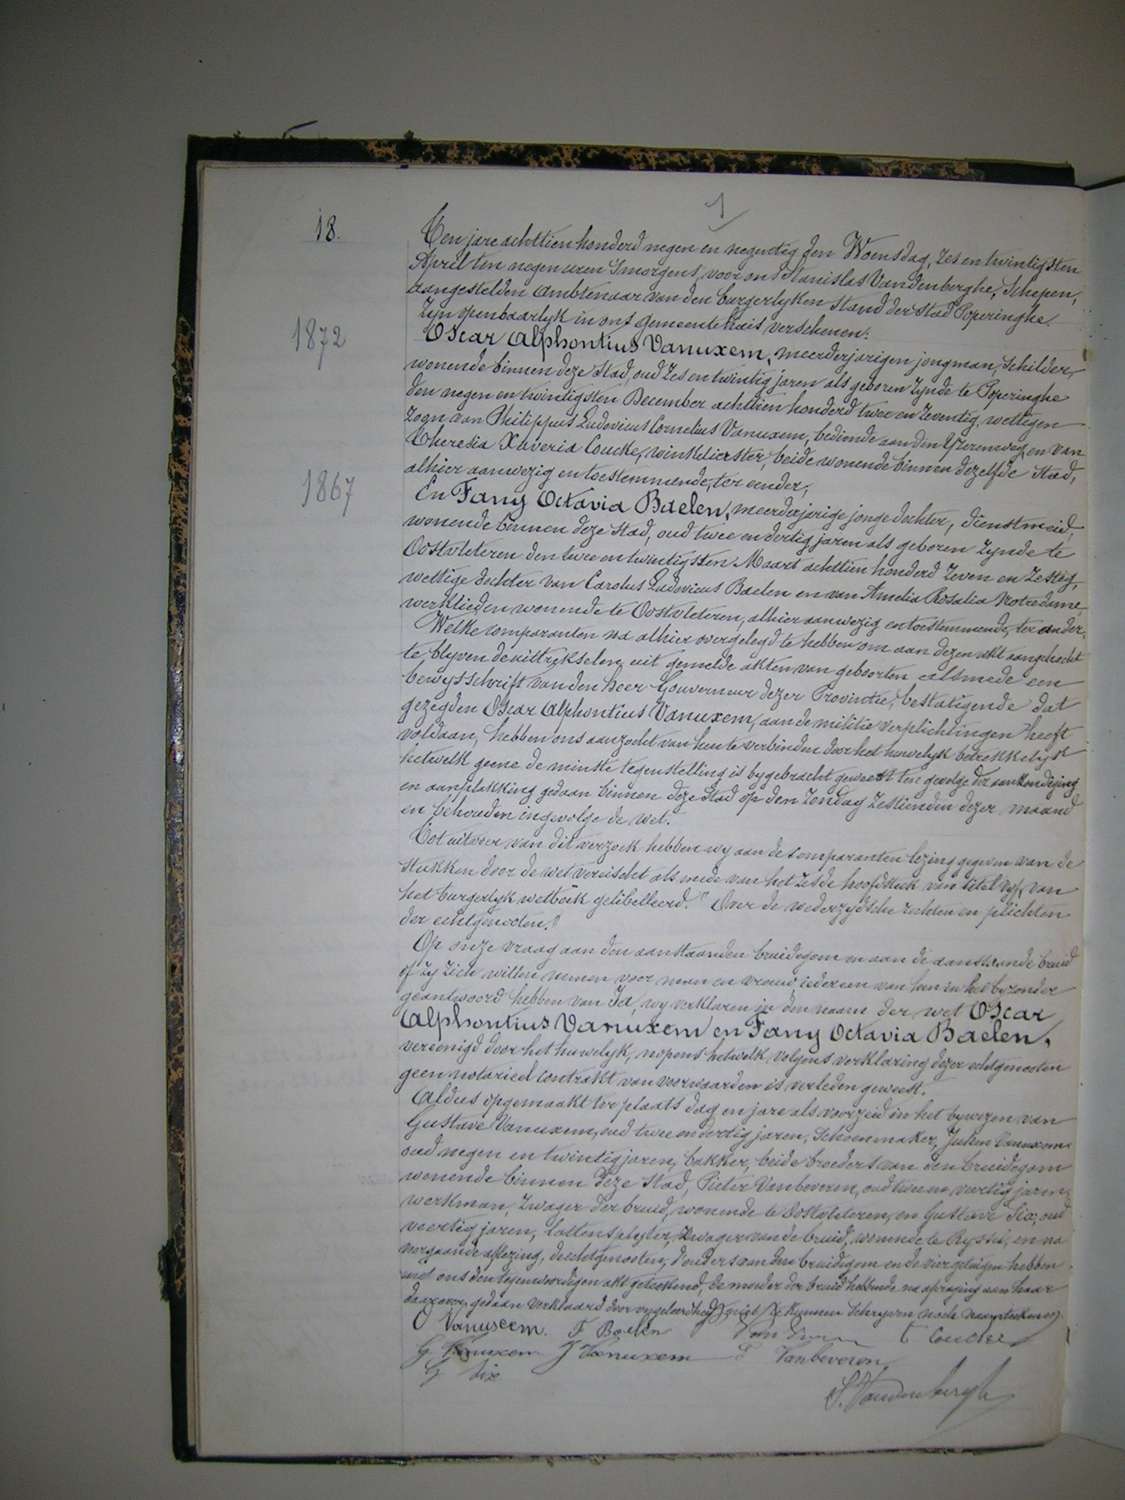 1
18.
Ten jare achttien honderd negen en negentig den Woensdag, zes en twintigsten
April ten negen uren 's morgens, voor ons Stanislas Vandenberghe, Schepen,
aangestelden ambtenaar van den burgerlyken stand der Stad Poperinghe
zyn openbaarlyk in ons gemeentehuis verschenen:
1872
Oscar Alphontius Vanuxem, meerderjarigen jongman, Schilder,
wonende binnen deze Stad, oud zes en twintig jaren als geboren zynde te Poperinghe
den negen en twintigsten December achttien honderd twee en zeventig, wettigen
zoon van Philippus Ludovicus Cornelius Vanuxem, bediende aan den Yzerenweg, en van
Theresia Xaveria Coucke, winkelierster, beide wonende binnen dezelfde Stad,
alhier aanwezig en toestemmende, ter eender;
1867
En Fany Octavia Baelen, meerderjarige jonge dochter, dienstmeid,
wonende binnen deze Stad, oud twee en dertig jaren als geboren zynde te
Oostvleteren den twee en twintigsten Maart achttien honderd zeven en zestig,
wettige dochter van Carolus Ludovicus Baelen en van Amelia Rosalia Notredame,
werklieden, wonende te Oostvleteren, alhier aanwezig en toestemmende, ter ander.
Welke comparanten na alhier overgelegd te hebben om aan dezen akt aangehecht
te blyven de uittrekselen uit gemelde akten van geboorten alsmede een
bewysschrift van den heer Gouverneur dezer Provintie, bestatigende dat
gezegden Oscar Alphontius Vanuxem, aan de militie verplichtingen heeft
voldaan, hebben ons aanzocht van hen te verbinden door het huwelyk betrekkelyk
hetwelk geene de minste tegenstelling is bygebracht geweest ten gevolge der aankondiging
en aanplakking gedaan binnen deze Stad op den Zondag zestienden dezer maand
en behouden ingevolge de wet.
Tot uitvoer van dit verzoek hebben wy aan de comparanten lezing gegeven van de
stukken door de wet vereischt als mede van het zesde hoofdstuk van titel vyf, van
het burgerlyk wetboek gelibelleerd: "Over de wederzydsche rechten en plichten
der echtgenooten."
Op onze vraag aan den aanstaanden bruidegom en aan de aanstaande bruid
of zy zich willen nemen voor man en vrouw, iedereen van hen in het byzonder
geantwoord hebben van Ja, wy verklaren in den naam der wet Oscar
Alphontius Vanuxem en Fany Octavia Baelen,
vereenigd door het huwelyk, nopens hetwelk volgens verklaring dezer echtgenooten
geen notarieel contrakt van voorwaarden is verleden geweest.
Aldus opgemaakt ter plaats dag en jare als voorzeid in het bywezen van
Gustave Vanuxem, oud twee en dertig jaren, Schoenmaker, Julien Vanuxem
oud negen en twintig jaren, bakker, beide broeders van den bruidegom
wonende binnen deze Stad, Pieter Vanbeveren, oud twee en veertig jaren,
werkman, zwager der bruid, wonende te Oostvleteren, en Gustave Six, oud
veertig jaren, lattensplyter, zwager van de bruid, wonende te Ryssel, en na
voorgaande aflezing, de echtgenooten, d'ouders van den bruidegom en de vier getuigen hebben
met ons den tegenwoordigen akt geteekend, de moeder der bruid hebbende na afvraging aan haar
daarover gedaan verklaard door ongeleerdheid niet te kunnen schryven noch naamteekenen
O Vanuxem. F Baelen T Coucke
G Vanuxem J Vanuxem P Vanbeveren
G Six
S. Vandenberghe